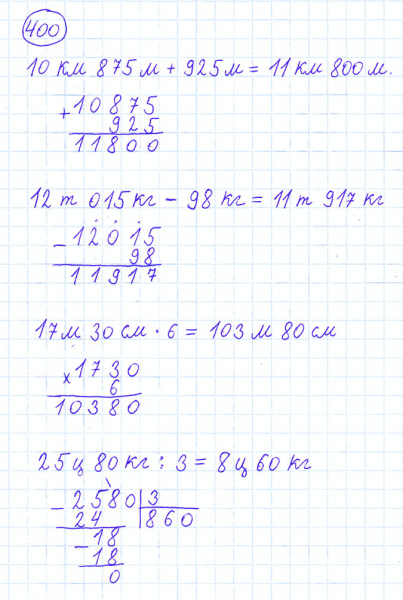 400
10 км 875 м + 925 м = 11 км 800 м.
+10875
925
11800
12 т 015 кг - 98 кг = 11 т 917 кг
-12015
98
11917
17 м 30 см · 6 = 103 м 80 см
×1730
6
10380
25 ц 80 кг : 3 = 8 ц 60 кг
-2580 3
24 860
-18
18
0